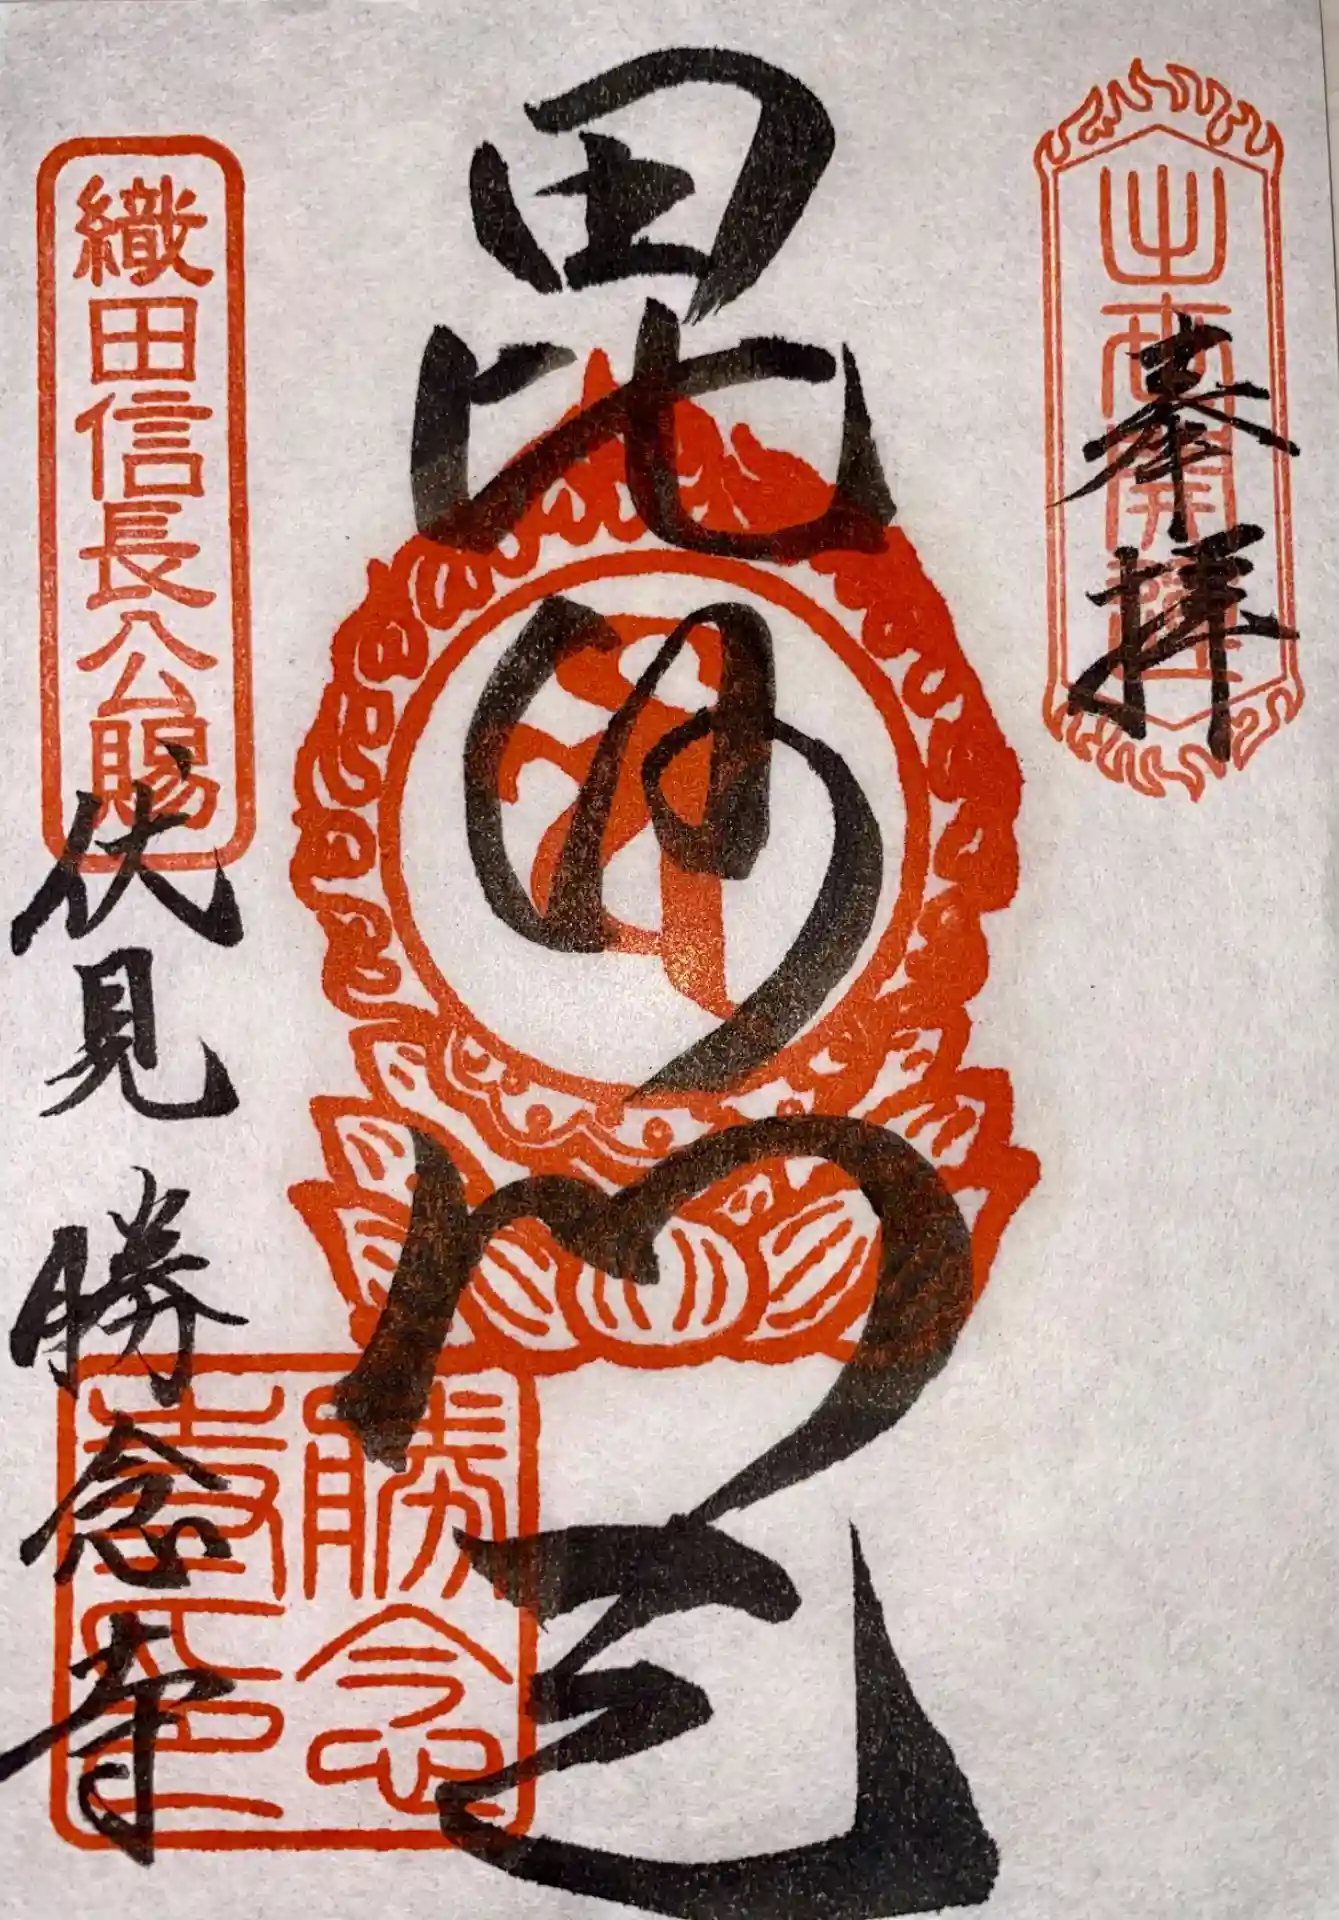 奉拝
出世開運
毘沙門天
織田信長公賜
伏見 勝念寺
勝念
寺印